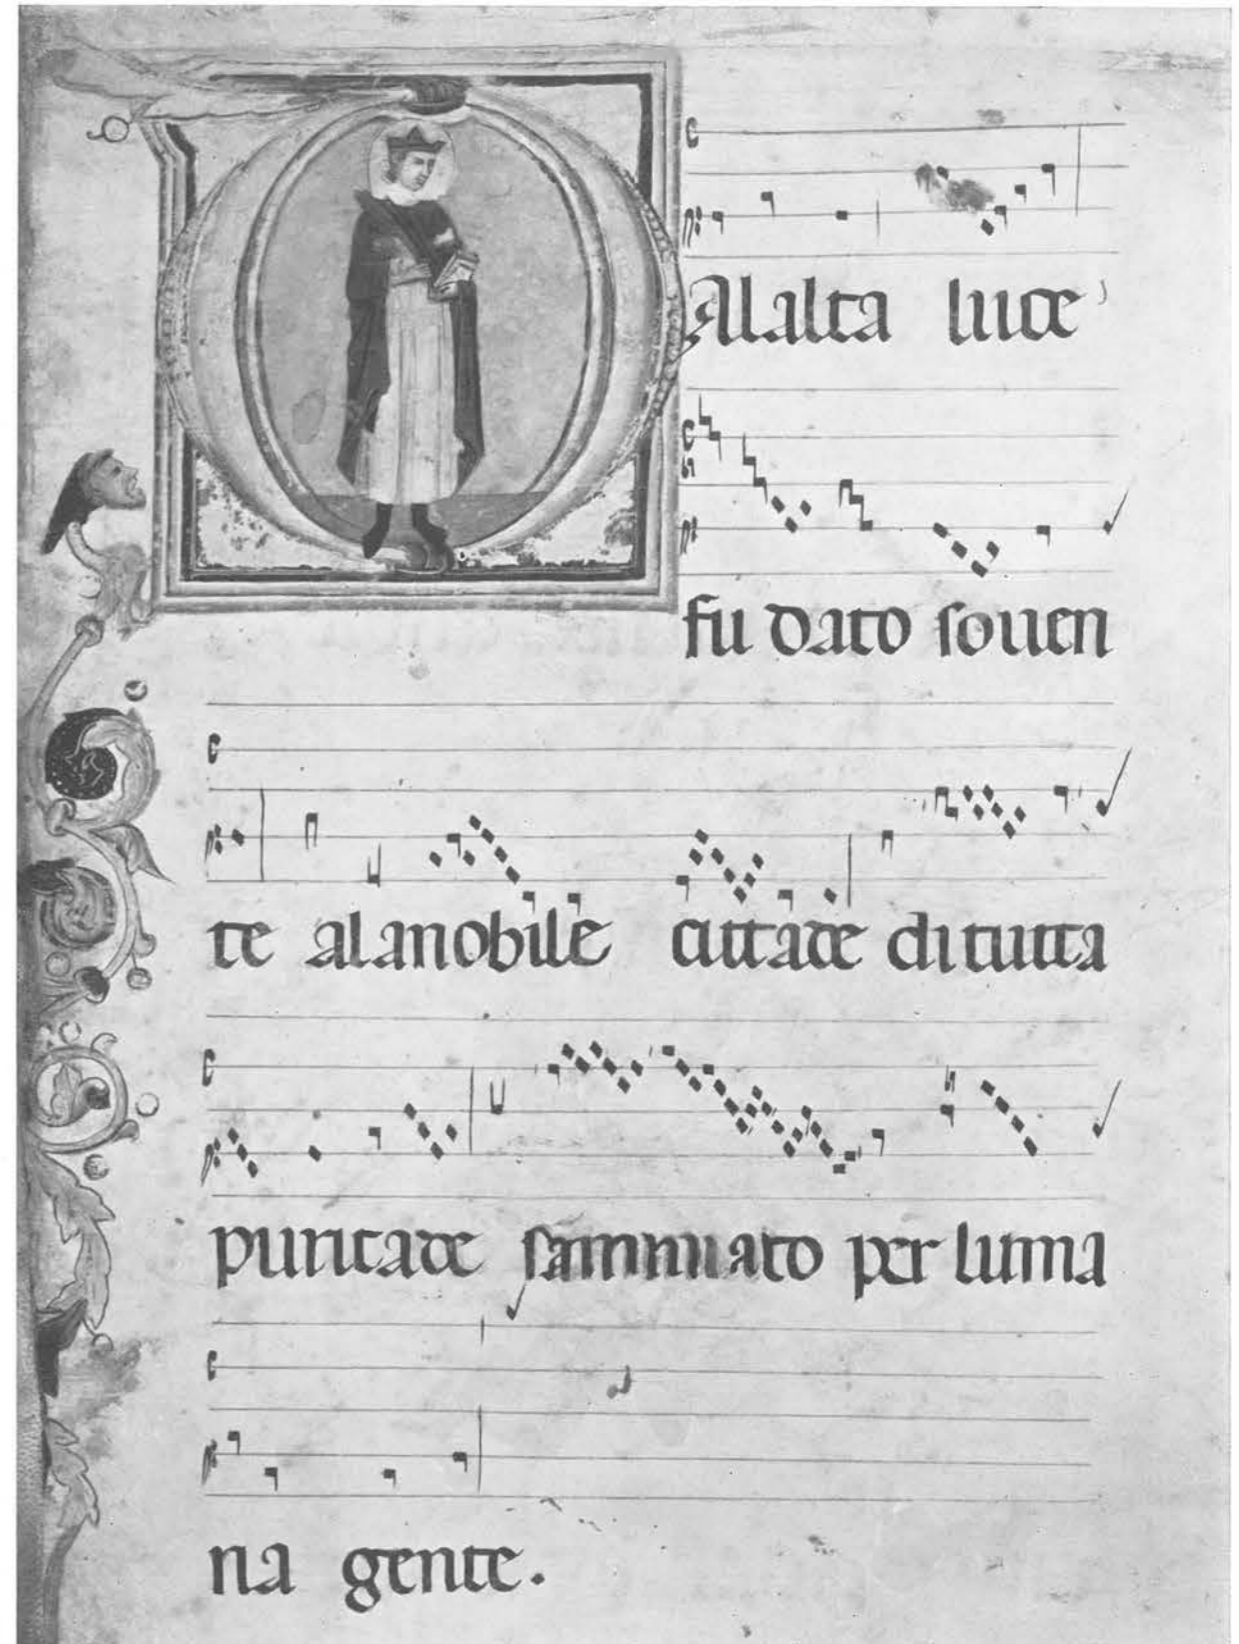 DAlalta luce
fu dato souen
te alanobile cittade ditutta
puritade samminiato per luma
na gente.